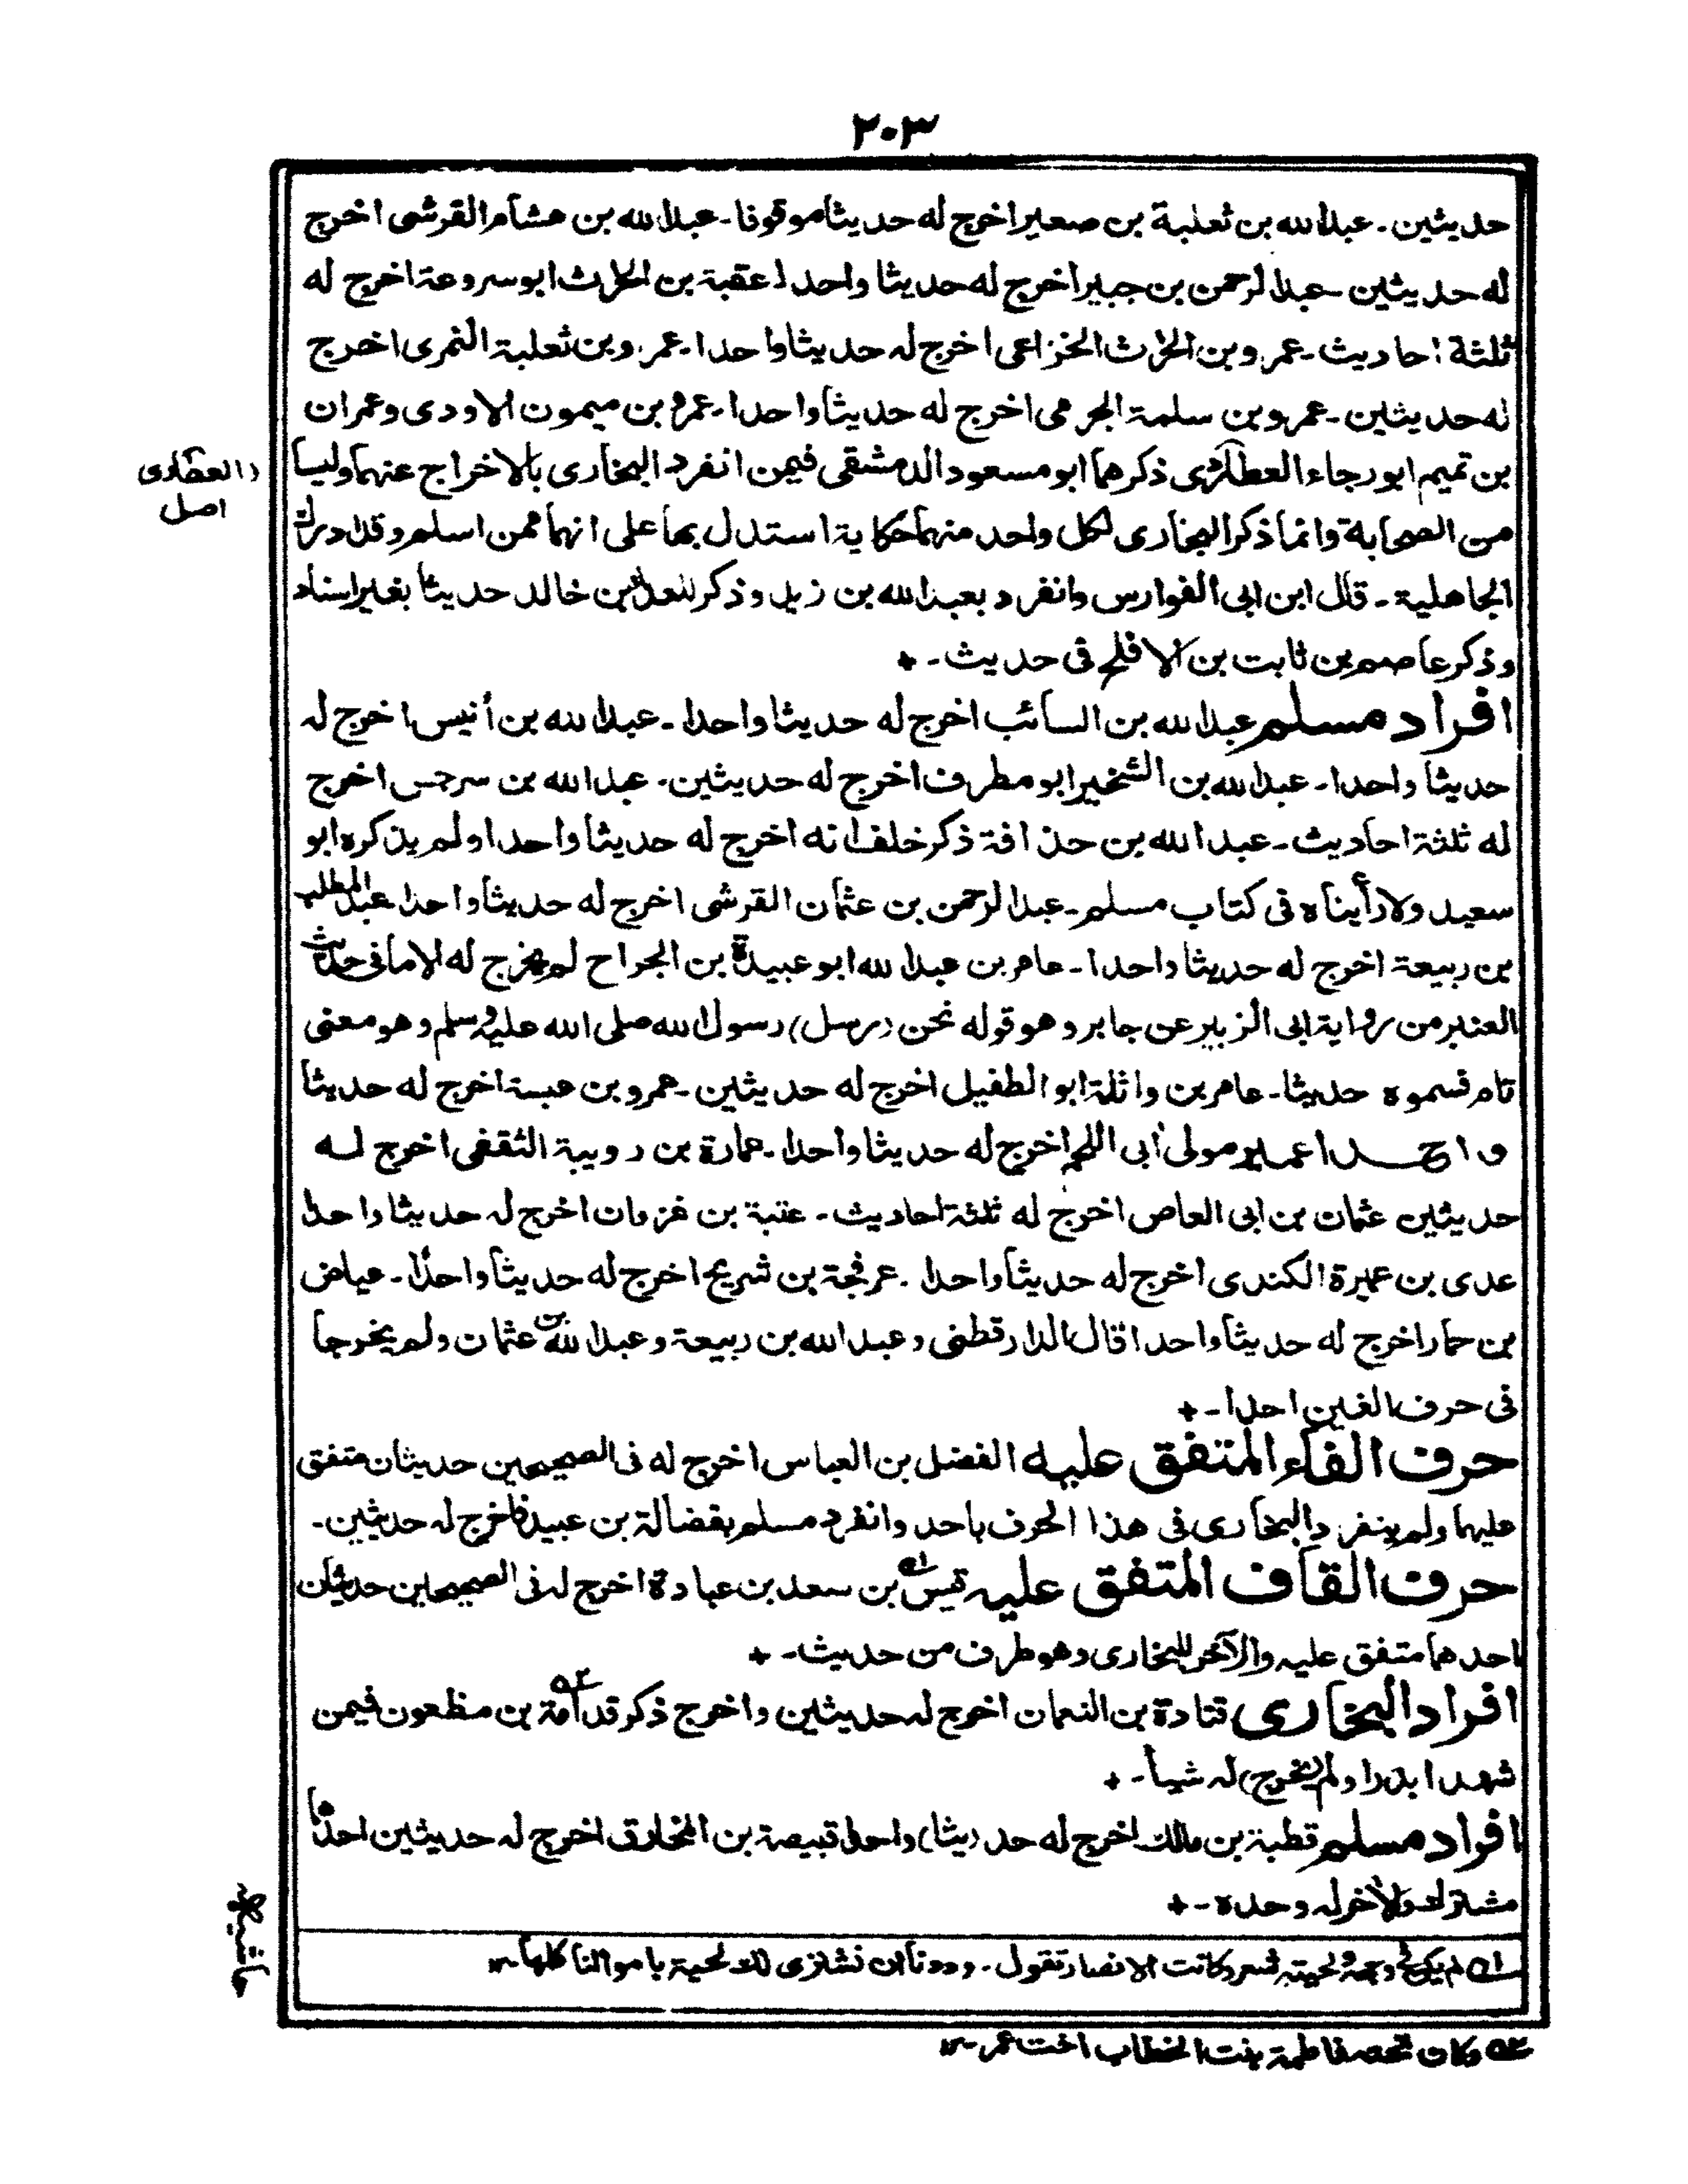 ٢٠٣
حديثين ـ عبدالله بن ثعلبة بن صعير اخرج له حديثا موقوفا ـ عبدالله بن هشام القرشى اخرج
له حديثين ـ عبدالرحمن بن جبير اخرج له حديثا واحدا عقبة بن الحرث ابوسروعة اخرج له
ثلثة احاديث ـ عمرو بن الحرث الخزاعى اخرج له حديثا واحدا ـ عمرو بن ثعلبة النمرى اخرج
له حديثين ـ عمرو بن سلمة الجرمى اخرج له حديثا واحدا ـ عمرو بن ميمون الاودى وعمران
بن تميم ابورجاء العطاردى ذكرهما ابومسعود الدمشقى فيمن انفرد البخارى بالاخراج عنهما وليسا
(العطاردى
اصل
من الصحابة وانما ذكر البخارى لكل واحد منهما حكاية استدل بها على انهما ممن اسلم وقد ادرك
الجاهلية ـ قال ابن ابى الفوارس وانفرد بعبدالله بن زيد وذكر بن خالد حديثا بغير اسناد
وذكر عاصم بن ثابت بن الافلح فى حديث ـ +
افراد مسلم عبدالله بن السائب اخرج له حديثا واحدا ـ عبدالله بن أنيس اخرج له
حديثا واحدا ـ عبدالله بن الشخير ابو مطرف اخرج له حديثين ـ عبدالله بن سرجس اخرج
له ثلثة احاديث ـ عبدالله بن حذافة ذكر خلف انه اخرج له حديثا واحدا ولم يذكره ابو
سعيد ولا رأيناه فى كتاب مسلم ـ عبدالرحمن بن عثمان القرشى اخرج له حديثا واحدا عبدالمطلب
بن ربيعة اخرج له حديثا واحدا ـ عامر بن عبدالله ابوعبيدة بن الجراح لم يخرج له الا ما فى حديث
العنبر من رواية ابى الزبير عن جابر وهو قوله نحن (رسل) رسول الله صلى الله عليه وسلم وهو معنى
تام قسموه حديثا ـ عامر بن واثلة ابوالطفيل اخرج له حديثين ـ عمرو بن عبسة اخرج له حديثا
واحدا عمير مولى ابى اللحم اخرج له حديثا واحدا ـ عمارة بن رويبة الثقفى اخرج له
حديثين عثمان بن ابى العاص اخرج له ثلثة احاديث ـ عتبة بن غزوان اخرج له حديثا واحدا
عدى بن عميرة الكندى اخرج له حديثا واحدا ـ عرفجة بن شريح اخرج له حديثا واحدا ـ عياض
بن حمار اخرج له حديثا واحدا قال الدارقطنى وعبدالله بن ربيعة وعبدالله بن عثمان ولم يخرجا
فى حرف الغين احدا ـ +
حرف الفاء المتفق عليه الفضل بن العباس اخرج له فى الصحيحين حديثان متفق
عليهما ولم ينفرد البخارى فى هذا الحرف باحد وانفرد مسلم بفضالة بن عبيد فاخرج له حديثين ـ
حرف القاف المتفق عليه قيس له بن سعد بن عبادة اخرج له فى الصحيحين حديثان
احدهما متفق عليه والآخر للبخارى وهو طرف من حديث ـ +
افراد البخارى قتادة بن النعمان اخرج له حديثين واخرج ذكر قدامة ٢ه بن مظعون فيمن
شهد ابدرا ولم (يخرج) له شيأ ـ +
افراد مسلم قطبة بن مالك اخرج له حد(يثا) واحدا قبيصة بن المخارق اخرج له حديثين احدها
مشترك والأخر له وحده ـ +
حاشيه
له لم يكن فى وجهه ولحيته شعر وكانت الانصار تقول ـ وددنا ان نشترى لك لحية باموالنا كلها ١٢
٢ه وكان تحته فاطمة بنت الخطاب اخت عمر ١٢